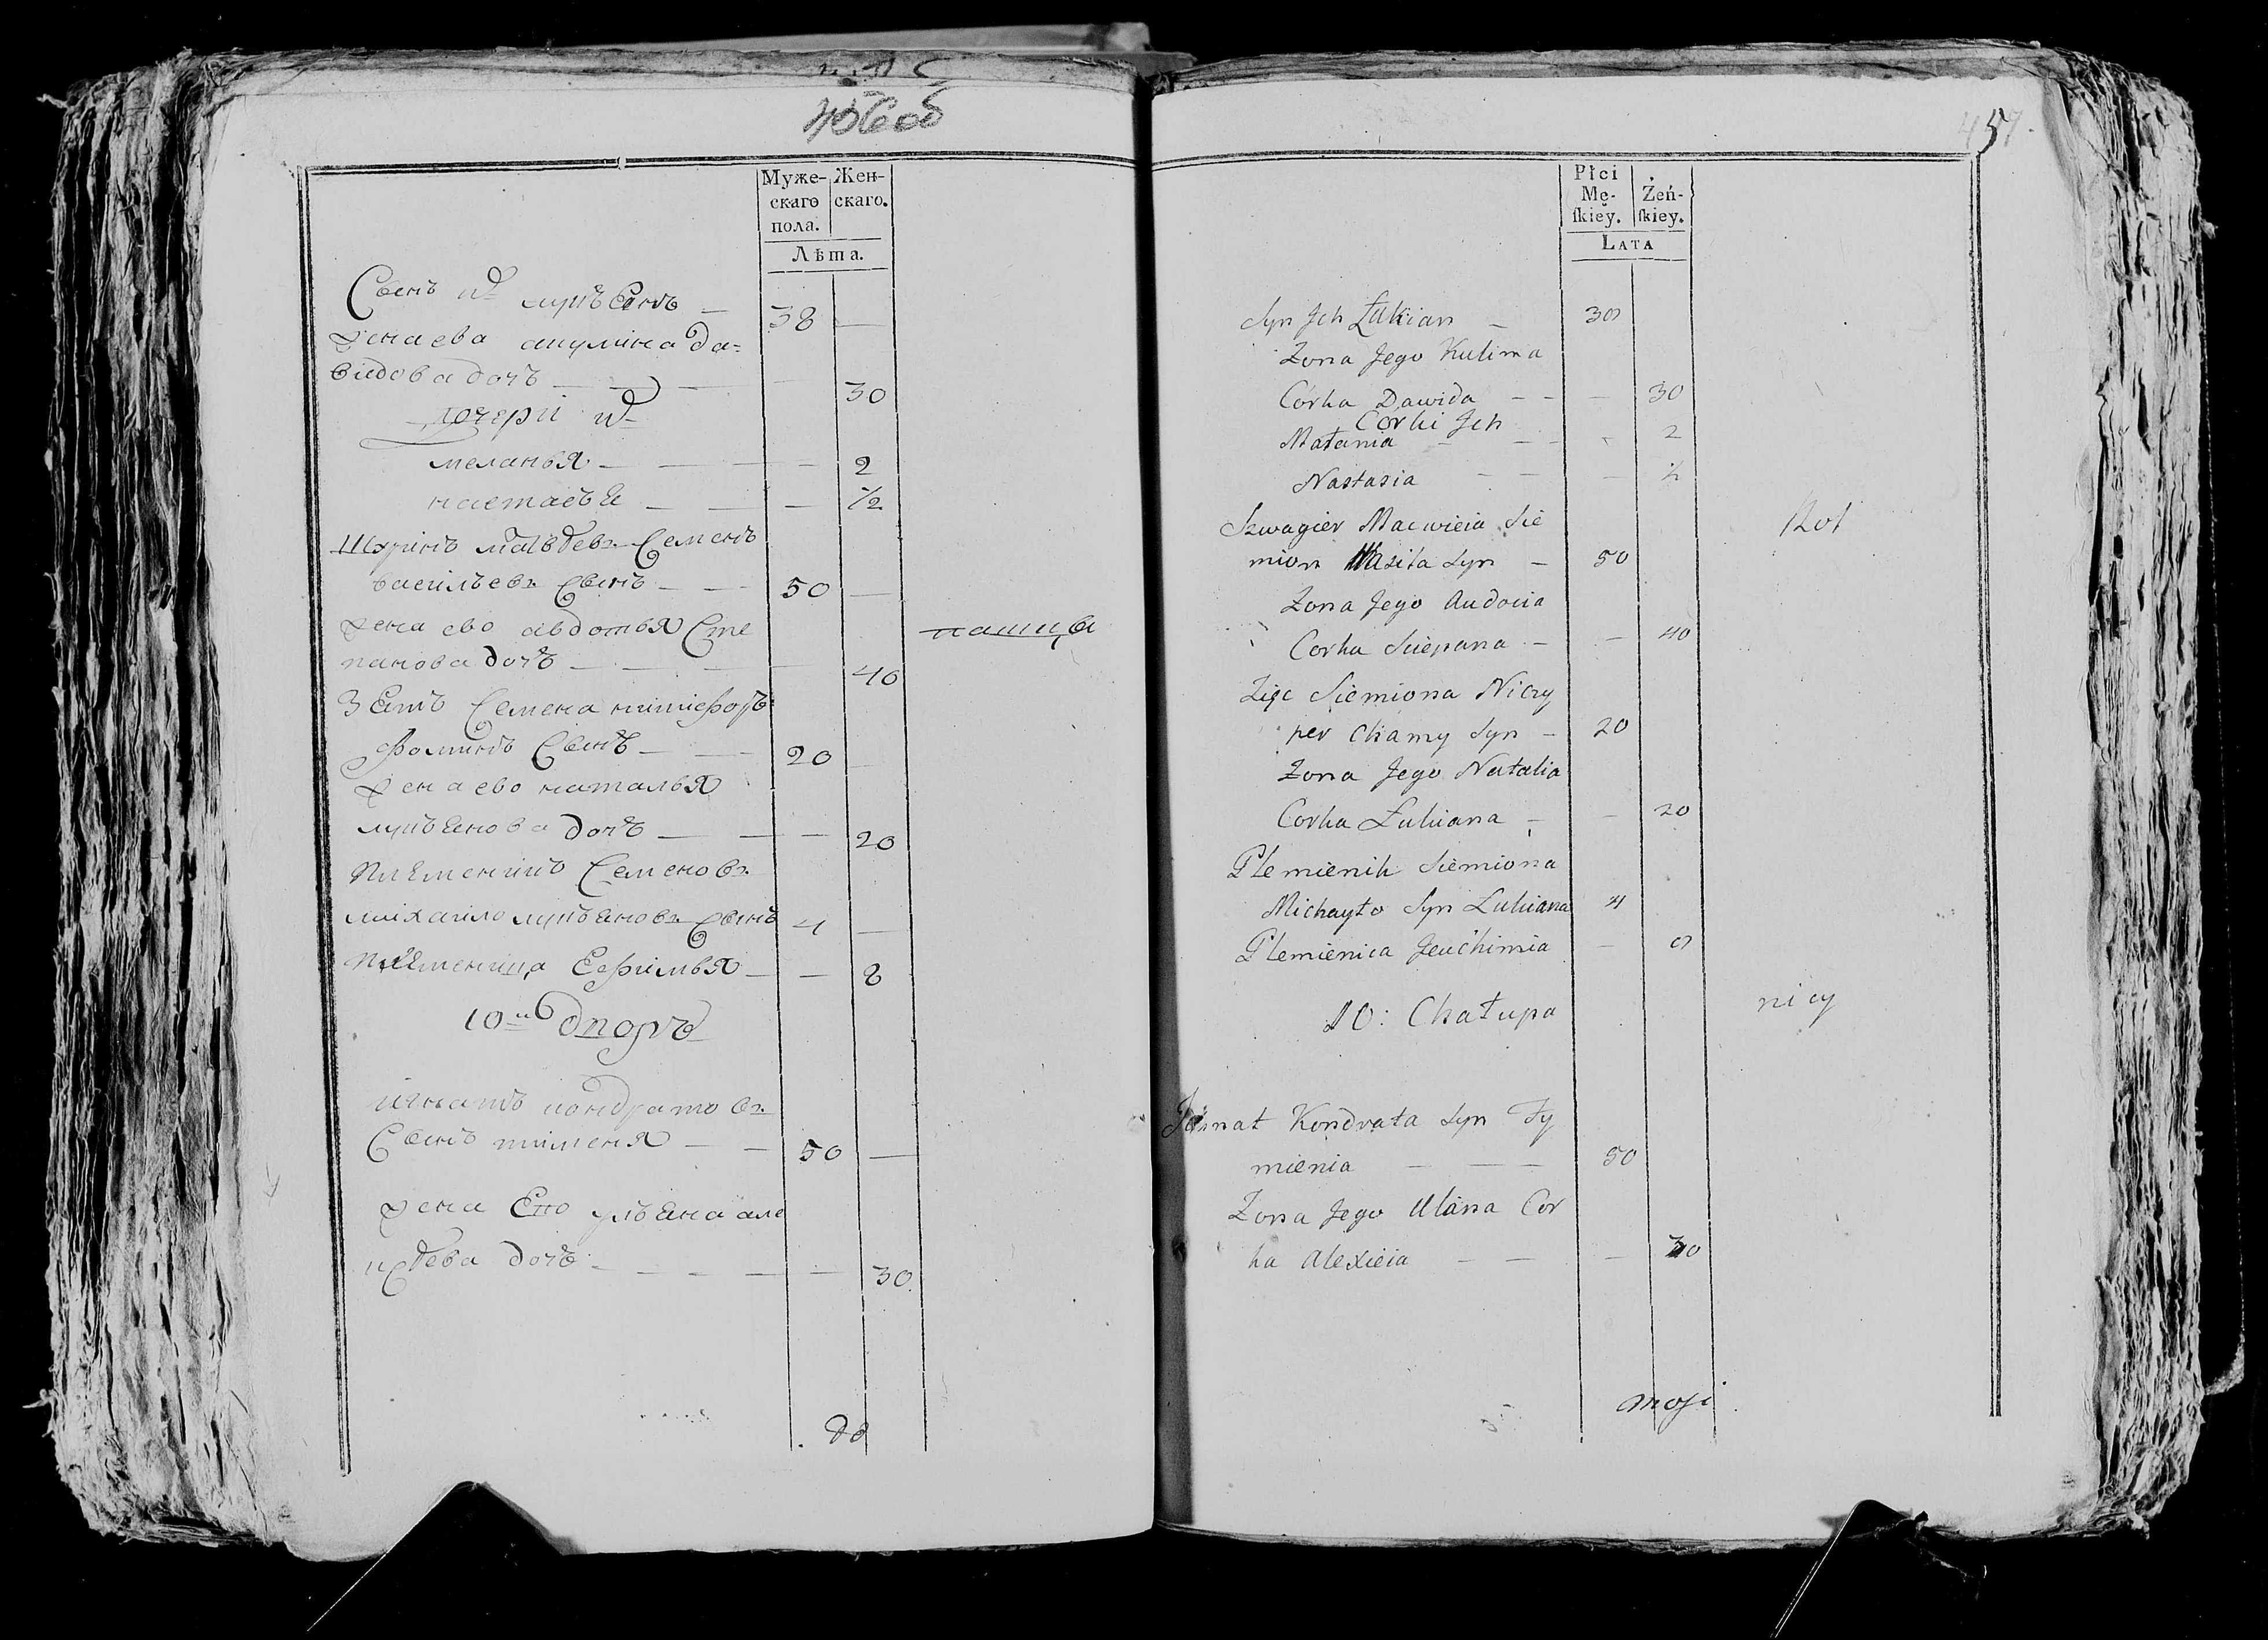 456 об
Муже-
скаго
пола.
Жен-
скаго.
Лѣта.
Сынъ их лукъянъ — 38 —
жена ево акулина да=
видова дочь — — — 30
дочери их
меланья — — — 2
настасья — — — 1/2
Шуринъ матвѣевъ Семенъ
васильевъ сынъ — — 50 —
жена ево авдотья Сте
панова дочь — — — 40
пашца
Зять Семена никифоръ
фоминъ Сынъ — — 20 —
жена ево наталья
лукъянова дочь — — — 20
племянникъ Семеновъ
михаило лукъяновъ сынъ 4 —
племяница Ефимья — — 8
10й дворъ
игнатъ кондратовъ
Сынъ тименя — — 50 —
жена Ево ульяна але
ксѣева дочь — — — — — 30
457
Płci
Mę-
skiey.
Żeń-
skiey.
Lata
Syn Jch Łukian — 38
Zona Jego Kulima
Córka Dawida — — — 30
Corki Jch
Małania — — 2
Nastasia — — — 1/2
Szwagier Macwieia Sie
mion Wasila Syn — 50
Rol
Zona Jego Audocia
Corka Sciepana — — 40
Zięc Siemiona Niczy
per Chamy Syn — 20
Zona Jego Natalia
Corka Łukiana — — 20
Plemienik Siemiona
Michayło Syn Lukiana 4
Plemienica Jeuchimia — 8
10: Chałupa
nicy
Jhnat Kondrata Syn Ty
mienia — — — 50
Zona Jego Ulana Cor
ka Alexieia — — — 30